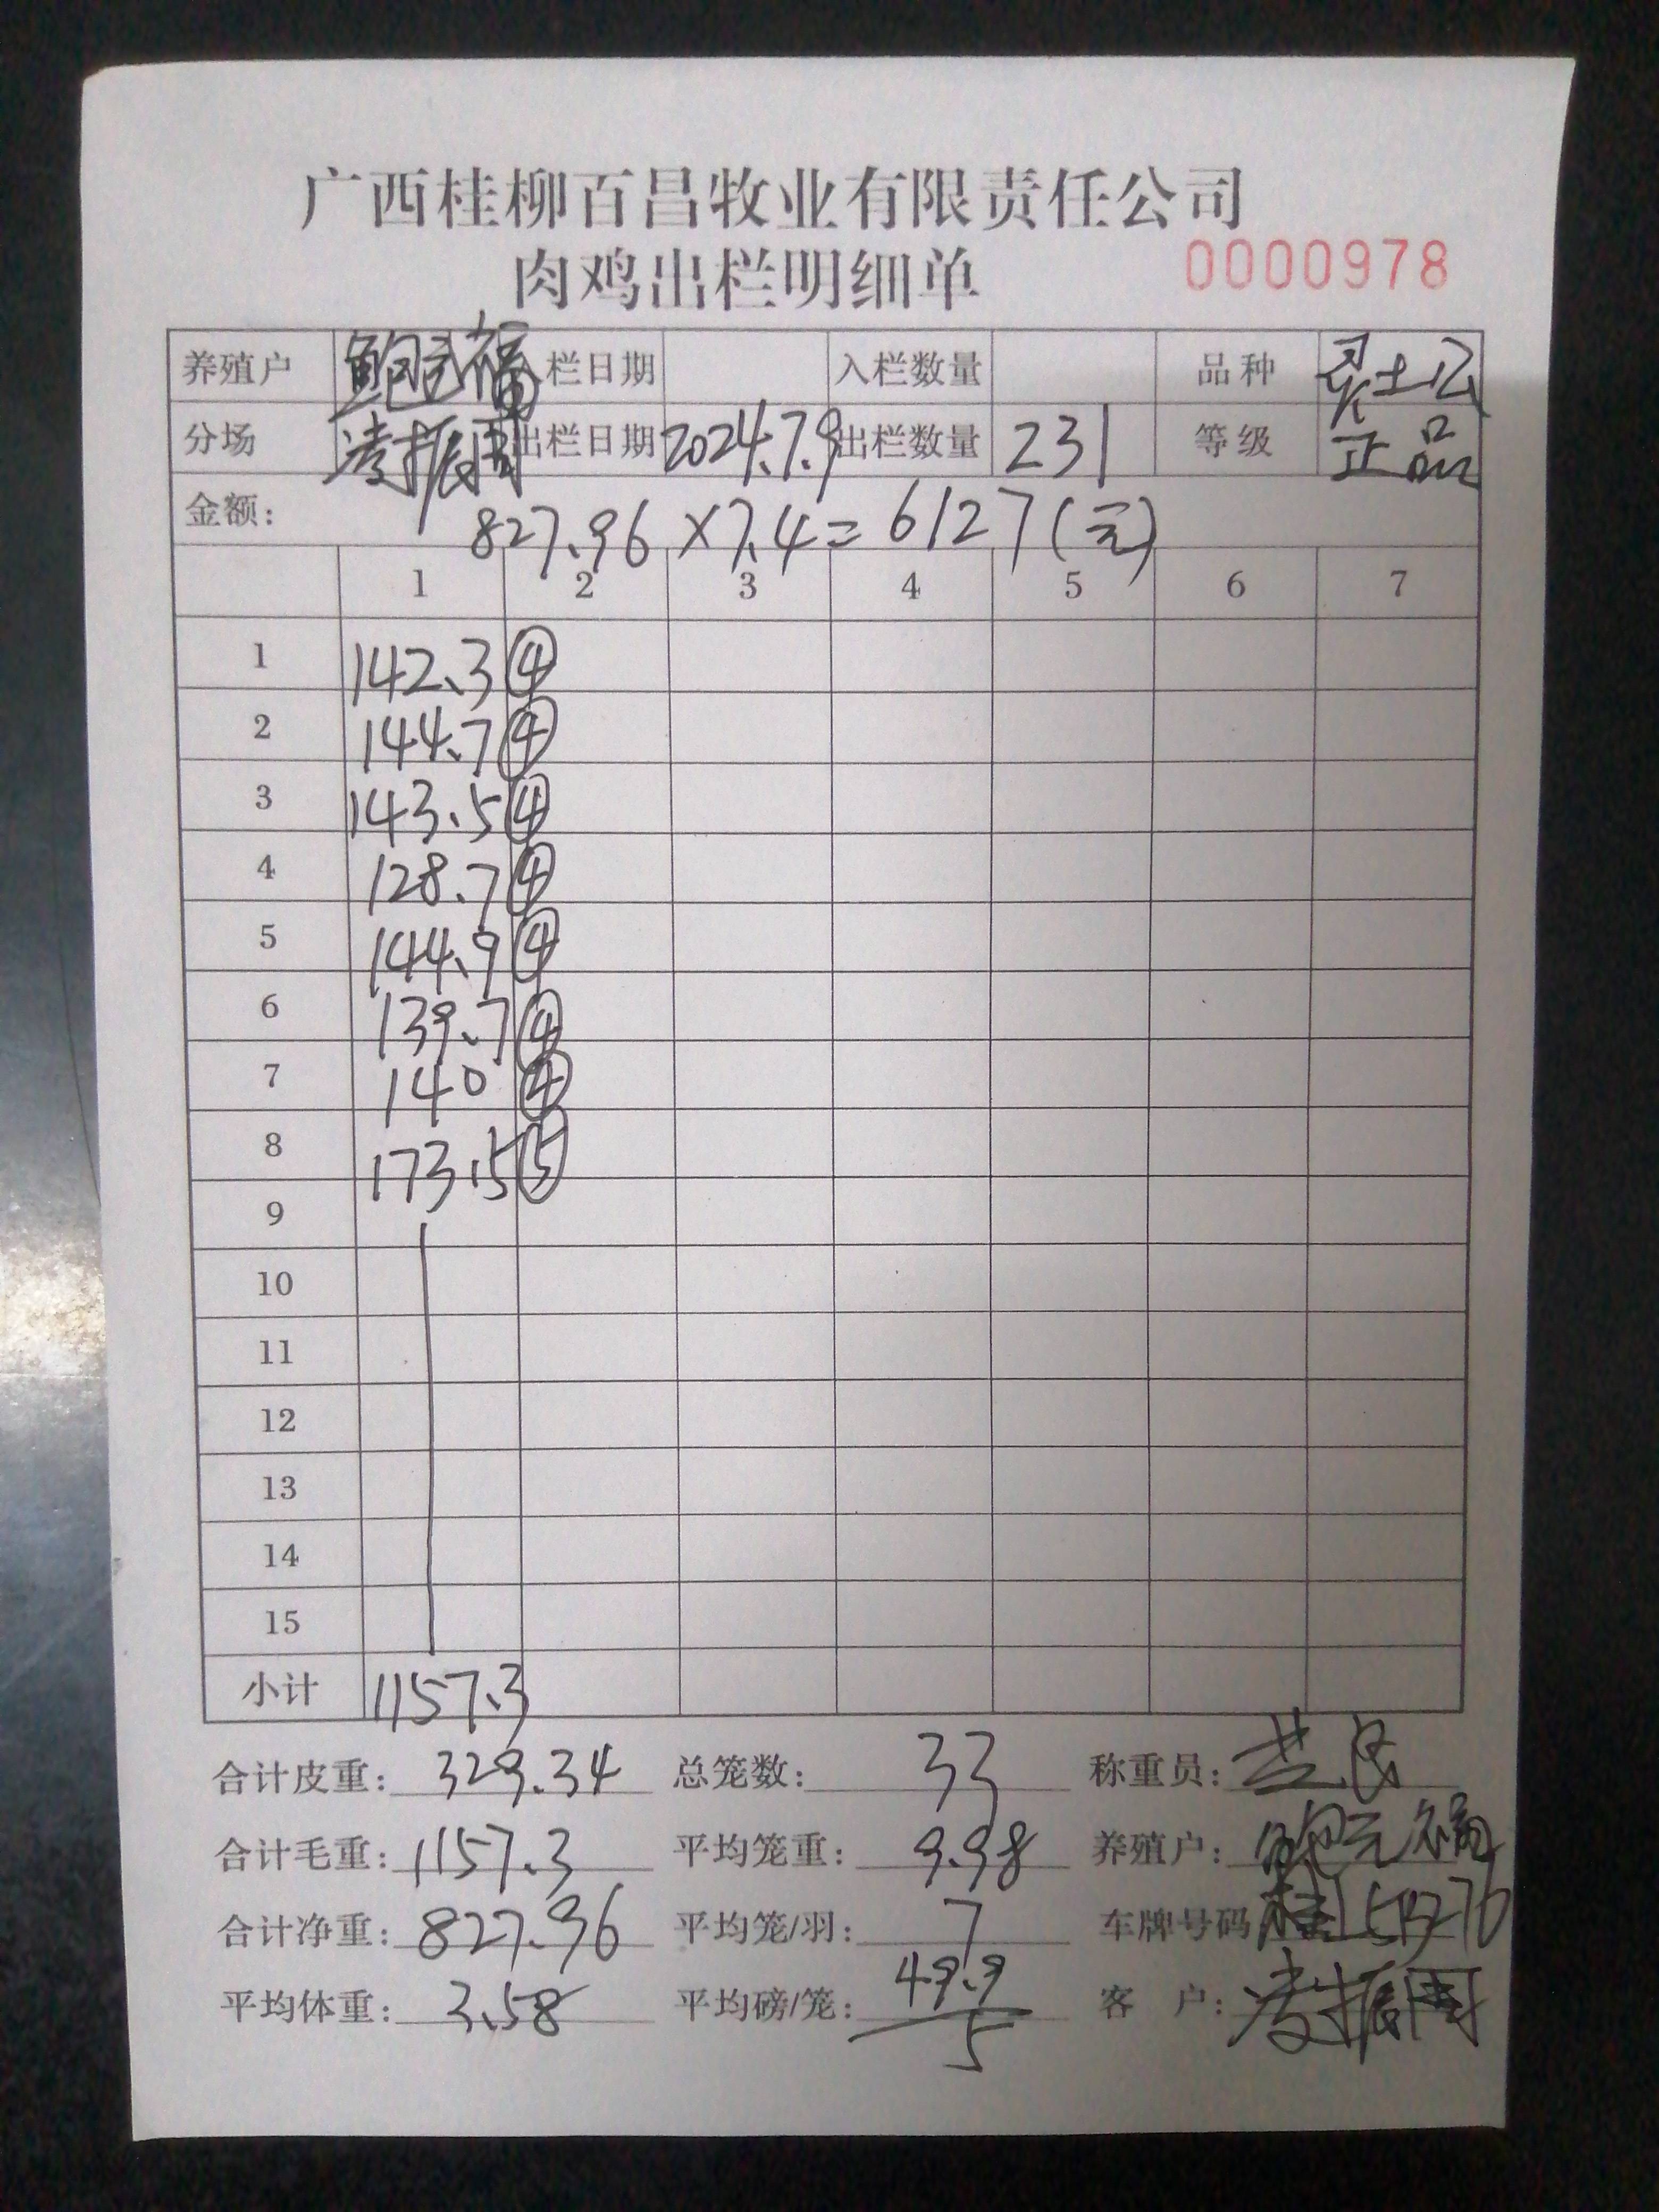 广西桂柳百昌牧业有限责任公司
肉鸡出栏明细单 0000978
养殖户 鲍元福 栏日期 入栏数量 品种 灵土公
分场 凌振周 出栏日期 2024.7.9 出栏数量 231 等级 正品
金额: 827.96×7.4=6127(元)
1 2 3 4 5 6 7
1 142.3 ④
2 144.7 ④
3 143.5 ④
4 128.7 ④
5 144.9 ④
6 139.7 ④
7 140 ④
8 173.5 ⑤
9
10
11
12
13
14
15
小计 1157.3
合计皮重: 329.34 总笼数: 33 称重员:
合计毛重: 1157.3 平均笼重: 9.98 养殖户: 鲍元福
合计净重: 827.96 平均笼/羽: 7 车牌号码
平均体重: 3.58 平均磅/笼: 49.9/5 客户: 凌振周